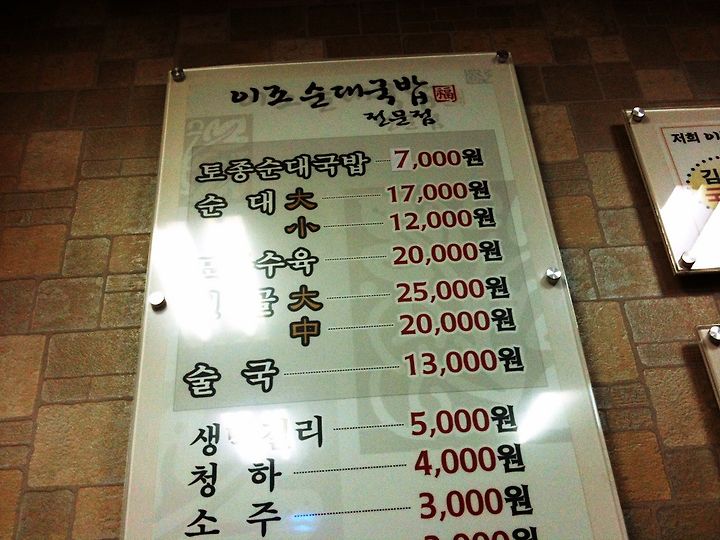 이조 순대국밥 福
전문점
토종순대국밥 7,000원
순대 大 17,000원
小 12,000원
수육 20,000원
大 25,000원
中 20,000원
술국 13,000원
5,000원
청하 4,000원
소주 3,000원
저희